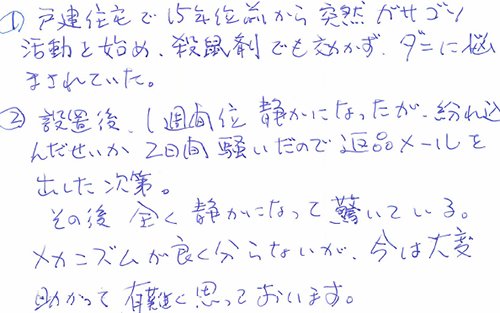 ① 戸建住宅で15年位前から突然ガサゴソ
活動を始め、殺鼠剤でも効かず、ダニに悩
まされていた。
② 設置後、1週間位静かになったが、紛れ込
んだせいか2日間騒いだので返品メールを
出した次第。
その後全く静かになって驚いている。
メカニズムが良く分らないが、今は大変
助かって有難く思っております。